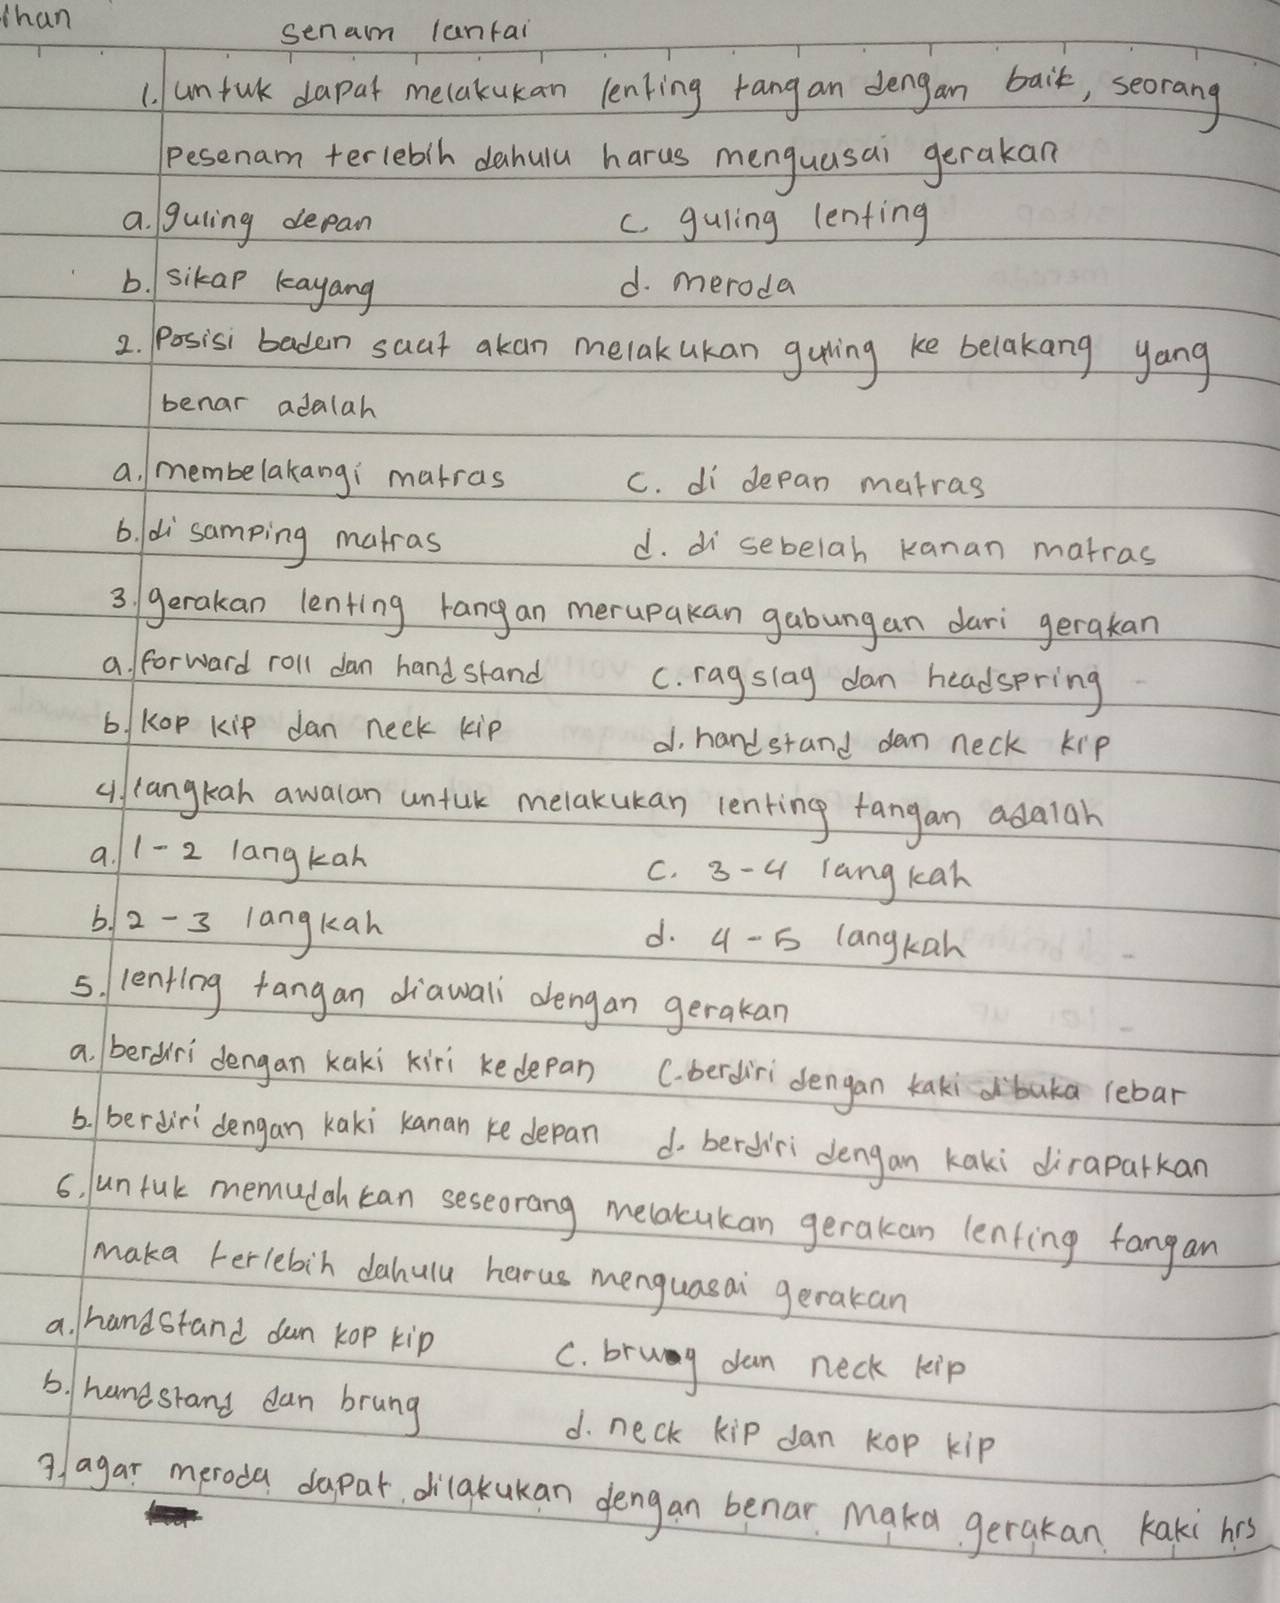 ihan
senam lantai
1. untuk dapat melakukan lenting tangan dengan baik, seorang
pesenam terlebih dahulu harus menguasai gerakan
a. guling depan c. guling lenting
b. sikap kayang d. meroda
2. Posisi badan saat akan melakukan guling ke belakang yang
benar adalah
a. membelakangi matras c. di depan matras
b. di samping matras d. di sebelah kanan matras
3. gerakan lenting tangan merupakan gabungan dari gerakan
a. forward roll dan handstand c. ragslag dan headspring
b. kop kip dan neck kip d. handstand dan neck kip
4. langkah awalan untuk melakukan lenting tangan adalah
a. 1-2 langkah c. 3-4 langkah
b. 2-3 langkah d. 4-5 langkah
5. lenting tangan diawali dengan gerakan
a. berdiri dengan kaki kiri kedepan c. berdiri dengan kaki dibuka lebar
b. berdiri dengan kaki kanan ke depan d. berdiri dengan kaki dirapatkan
6. untuk memudahkan seseorang melakukan gerakan lenting tangan
maka terlebih dahulu harus menguasai gerakan
a. handstand dan kop kip c. brung dan neck kip
b. handstand dan brung d. neck kip dan kop kip
7. agar meroda dapat dilakukan dengan benar maka gerakan kaki hrs